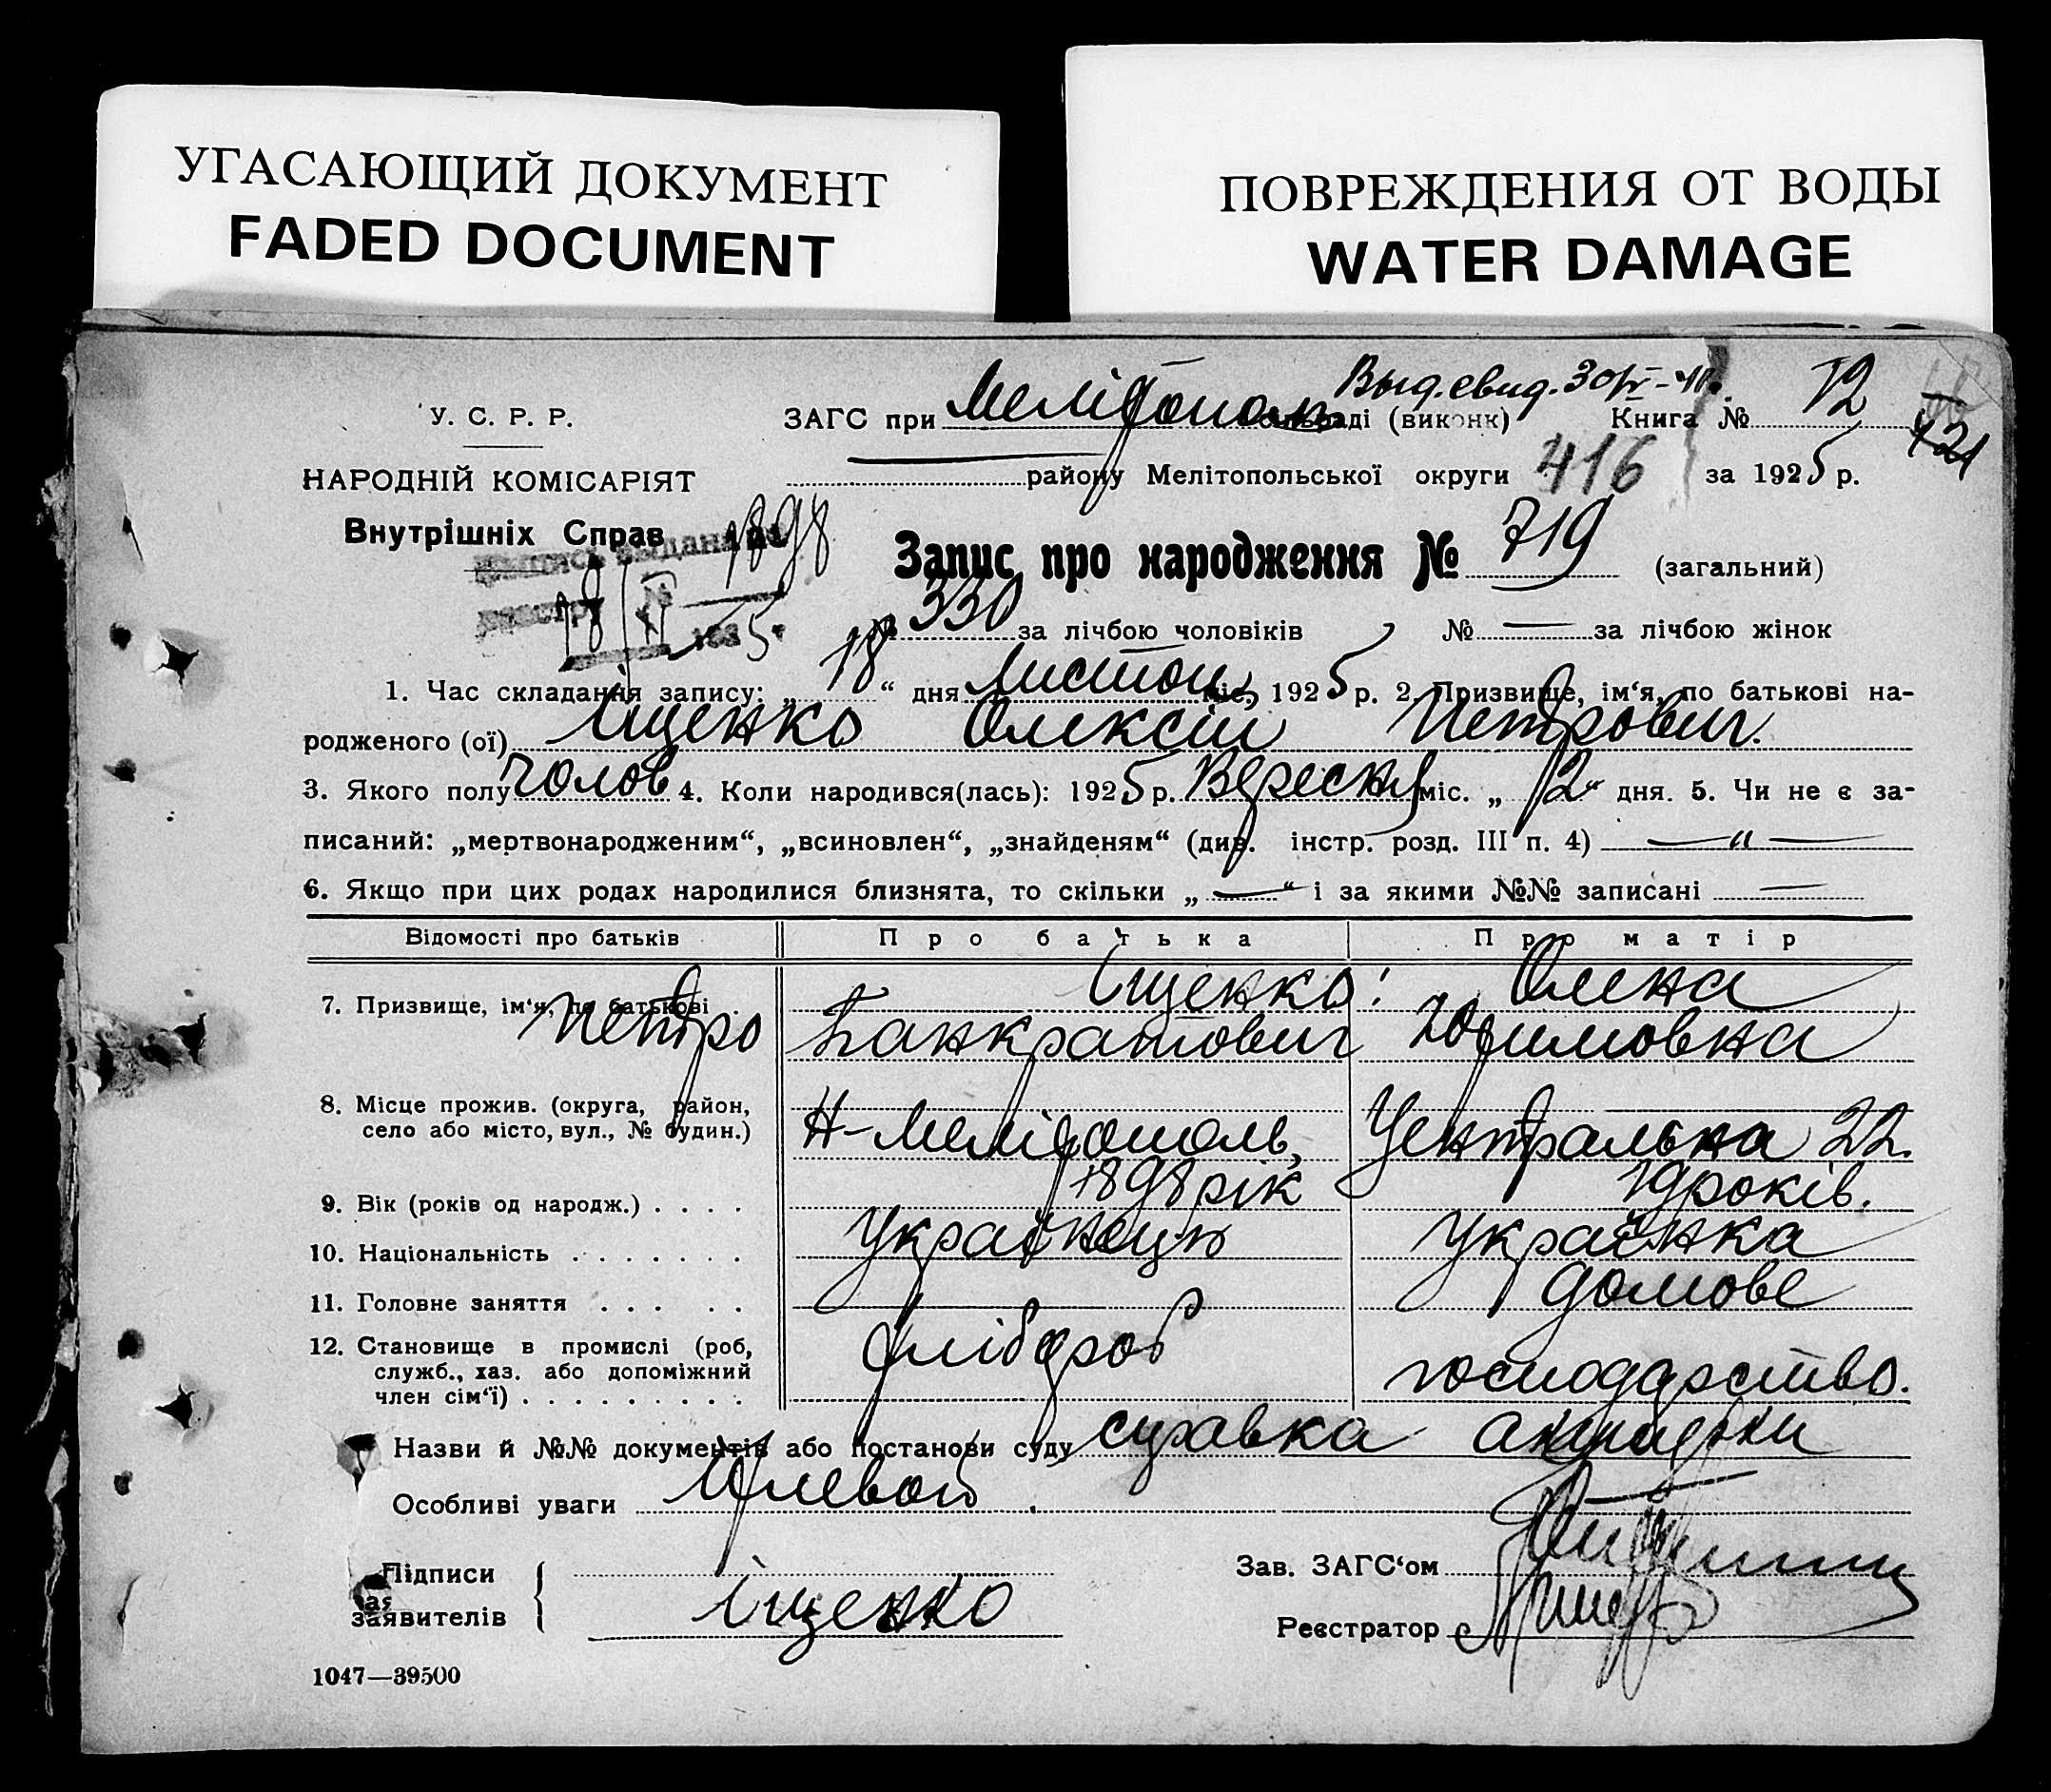 УГАСАЮЩИЙ ДОКУМЕНТ
FADED DOCUMENT
ПОВРЕЖДЕНИЯ ОТ ВОДЫ
WATER DAMAGE
Выд. свид. 30/IV-40.
У. С. Р. Р.
ЗАГС при Мелітополь сільраді (виконк) Книга № 12
121
НАРОДНІЙ КОМІСАРІЯТ
району Мелітопольської округи 416 за 1925 р.
Внутрішніх Справ
1898
18/XI 1925
Запис про народження № 719 (загальний)
№ 330 за лічбою чоловіків № — за лічбою жінок
1. Час складання запису: „ 18 “ дня Листоп міс. 1925 р. 2. Призвище, ім‘я, по батькові на-
родженого (ої) Іщенко Олексій Петрович.
3. Якого полу чолов 4. Коли народився(лась): 1925 р. Вересня міс. „ 12 “ дня. 5. Чи не є за-
писаний: „мертвонародженим“, „всиновлен“, „знайденям“ (див. інстр. розд. III п. 4) — „ —
6. Якщо при цих родах народилися близнята, то скільки „ — “ і за якими №№ записані —
Відомості про батьків Про батька Про матір
7. Призвище, ім‘я, по батькові Іщенко: Олена
Петро Панкратович Юхимовна
8. Місце прожив. (округа, район,
село або місто, вул., № будин.) Н-Мелітополь, Центральна 22.
9. Вік (років од народж.) . . . . 1898 рік 19 років.
10. Національність . . . . . . . Українець Українка
11. Головне заняття . . . . . домове
12. Становище в промислі (роб,
служб., хаз. або допоміжний
член сім‘ї) . . . . . . . . . хлібороб господарство.
Назви й №№ документів або постанови суду справка акушерки
Особливі уваги
Підписи
заявителів
Іщенко
Зав. ЗАГС‘ом
Реєстратор
1047—39500